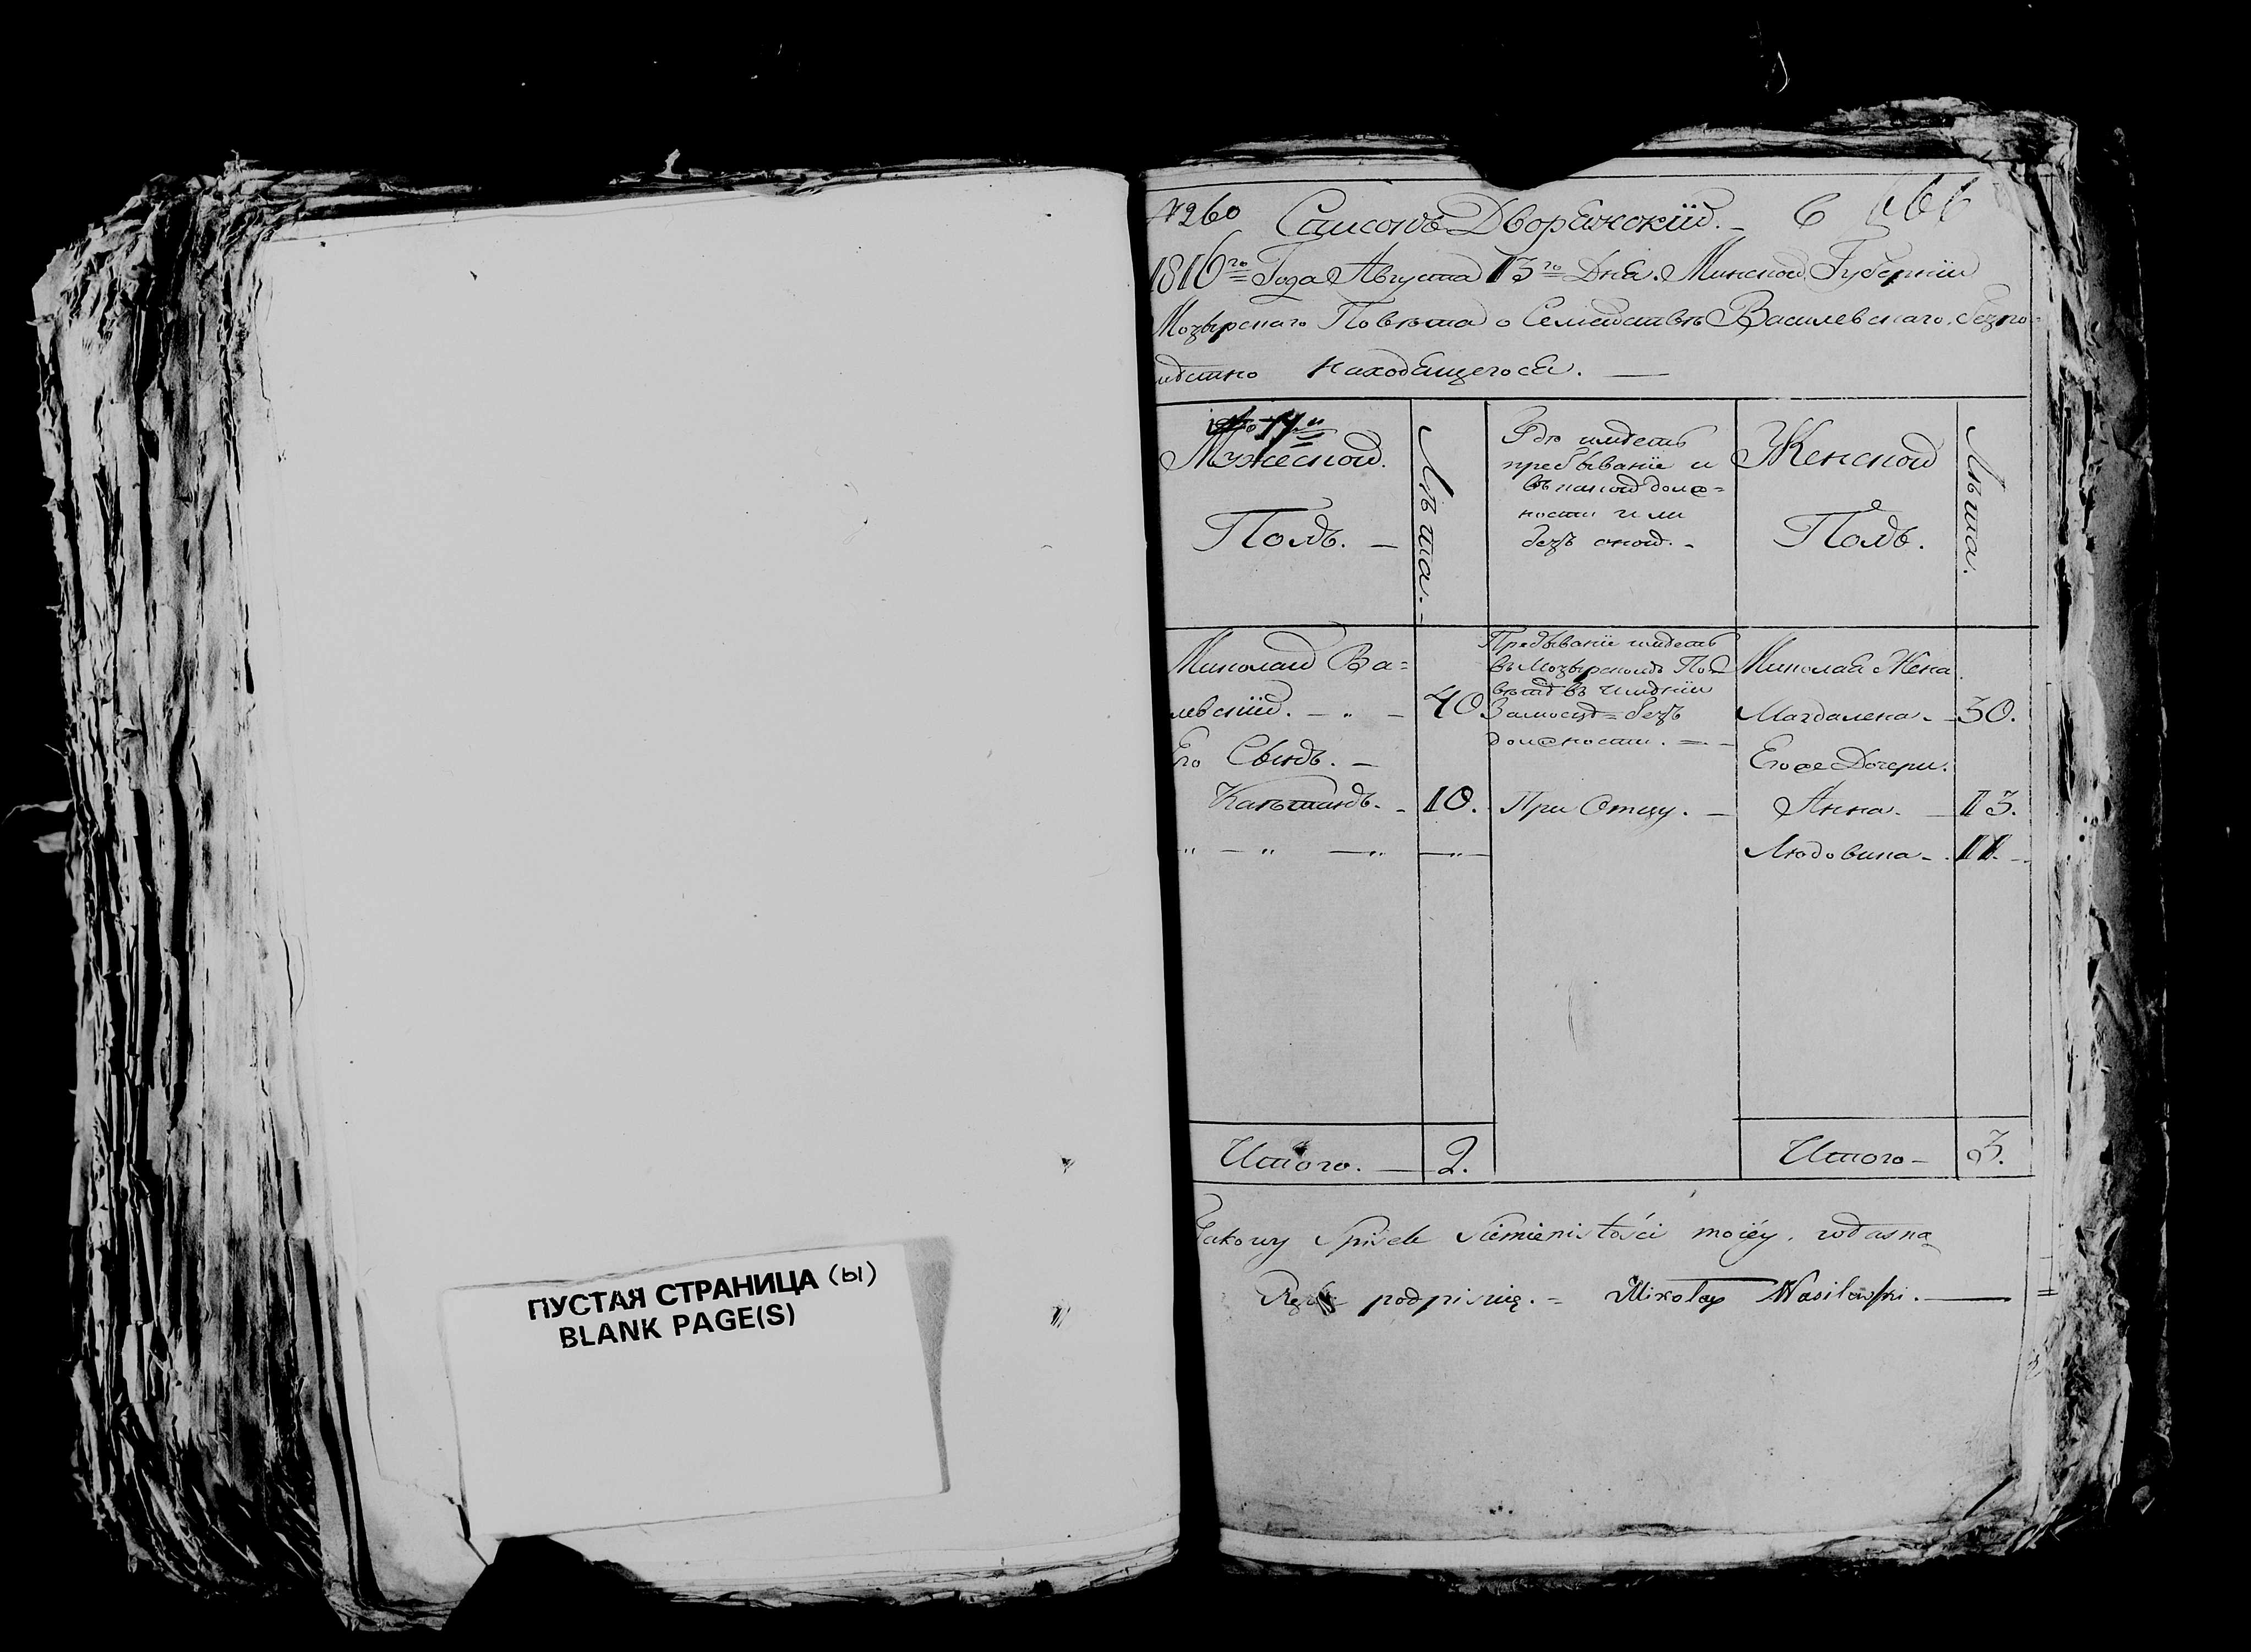 ПУСТАЯ СТРАНИЦА (ы)
BLANK PAGE(S)
№260 Списокъ Дворянскій. 6 666
1816го Года Августа 13го Дня. Минской Губерніи
Мозырскаго Повѣта о Семействѣ Василевскаго, безпо=
мѣстно находящегося.
Мужеской
Полъ.
Лѣта.
Гдѣ имѣетъ
пребываніе и
въ какой долж=
ности или
безъ оной.
Женской
Полъ.
Лѣта.
Миколай Ва=
левскій. 40
Пребываніе имѣетъ
въ Мозырскомъ По=
вѣтѣ въ имѣніи
безъ
должности.
Миколая Жена
Магдалена. 30.
Его Сынъ.
Его же Дочери.
10. При Отцу. Анна. 13.
Людовика. 11.
Итого. 2. Итого 3.
Takowy Spisek Siemienistości moiéy, własną
Ręką podpisuię. Mikołay Wasilewski.